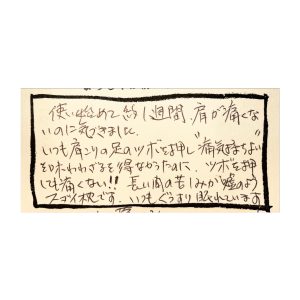 使い始めて約1週間、肩が痛くな
いのに気づきました。
いつも肩こりの足のツボを押し"痛気持ちよい"
を味わわざるを得なかったのに、ツボを押
しても痛くない!! 長い間の苦しみが嘘のよう
スゴイ枕です。いつもぐっすり眠れています